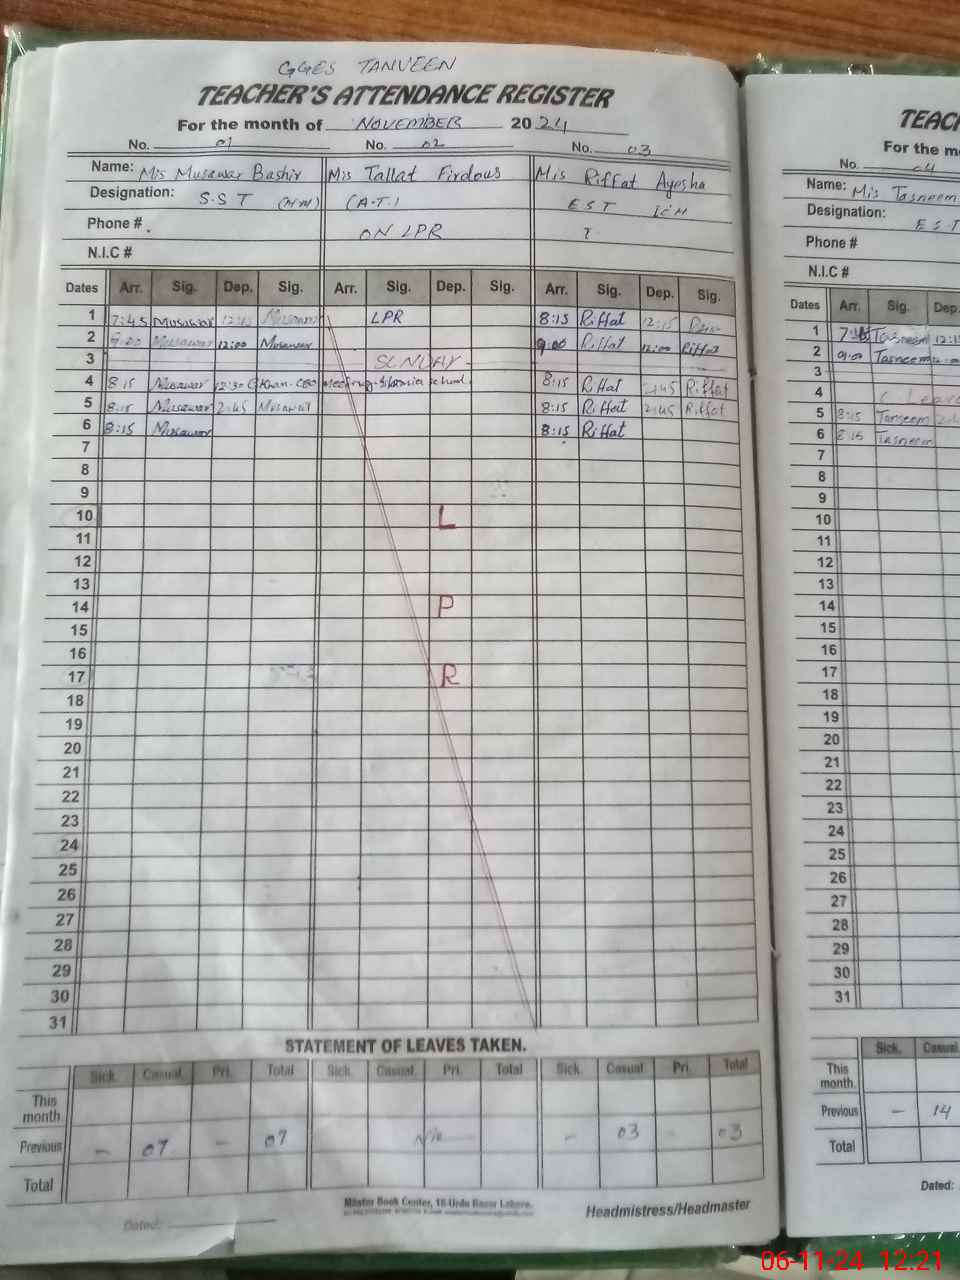 GGES TANVEEN
TEACHER'S ATTENDANCE REGISTER
For the month of NOVEMBER 2024
No. 01 No. 02 No. 03
Name: Mis Musawar Bashir Mis Tallat Firdous Mis Riffat Ayesha
Designation: S.S T (A.T.) E S T
Phone # ON LPR
N.I.C #
Dates Arr. Sig. Dep. Sig. Arr. Sig. Dep. Sig. Arr. Sig. Dep. Sig.
1 7:45 Musawar 12:15 Musawar LPR 8:15 Riffat 12:15
2 9:00 Musawar 12:00 Musawar 9:00 Riffat 12:00 Riffat
3 SUNDAY
4 8:15 Musawar 12:30 meeting school 8:15 Riffat 2:45 Riffat
5 8:15 Musawar 2:45 Musawar 8:15 Riffat 2:45 Riffat
6 8:15 Musawar 8:15 Riffat
7
8
9
10 L
11
12
13
14 P
15
16
17 R
18
19
20
21
22
23
24
25
26
27
28
29
30
31
STATEMENT OF LEAVES TAKEN.
Sick. Casual. Pri. Total Sick. Casual. Pri. Total Sick. Casual. Pri. Total
This month
Previous - 07 - 07 - 03 - 03
Total
Master Book Center, 18-Urdu Bazar Lahore.
Dated: Headmistress/Headmaster
TEAC
For the m
No. 04
Name: Mis Tasneem
Designation: E S T
Phone #
N.I.C #
Dates Arr. Sig. Dep.
1 Tasneem 12:15
2 9:00 Tasneem
3
4 C Leave
5 8:15 Tasneem
6 8:15 Tasneem
7
8
9
10
11
12
13
14
15
16
17
18
19
20
21
22
23
24
25
26
27
28
29
30
31
Sick. Casual.
This month.
Previous - 14
Total
Dated:
06-11-24 12:21